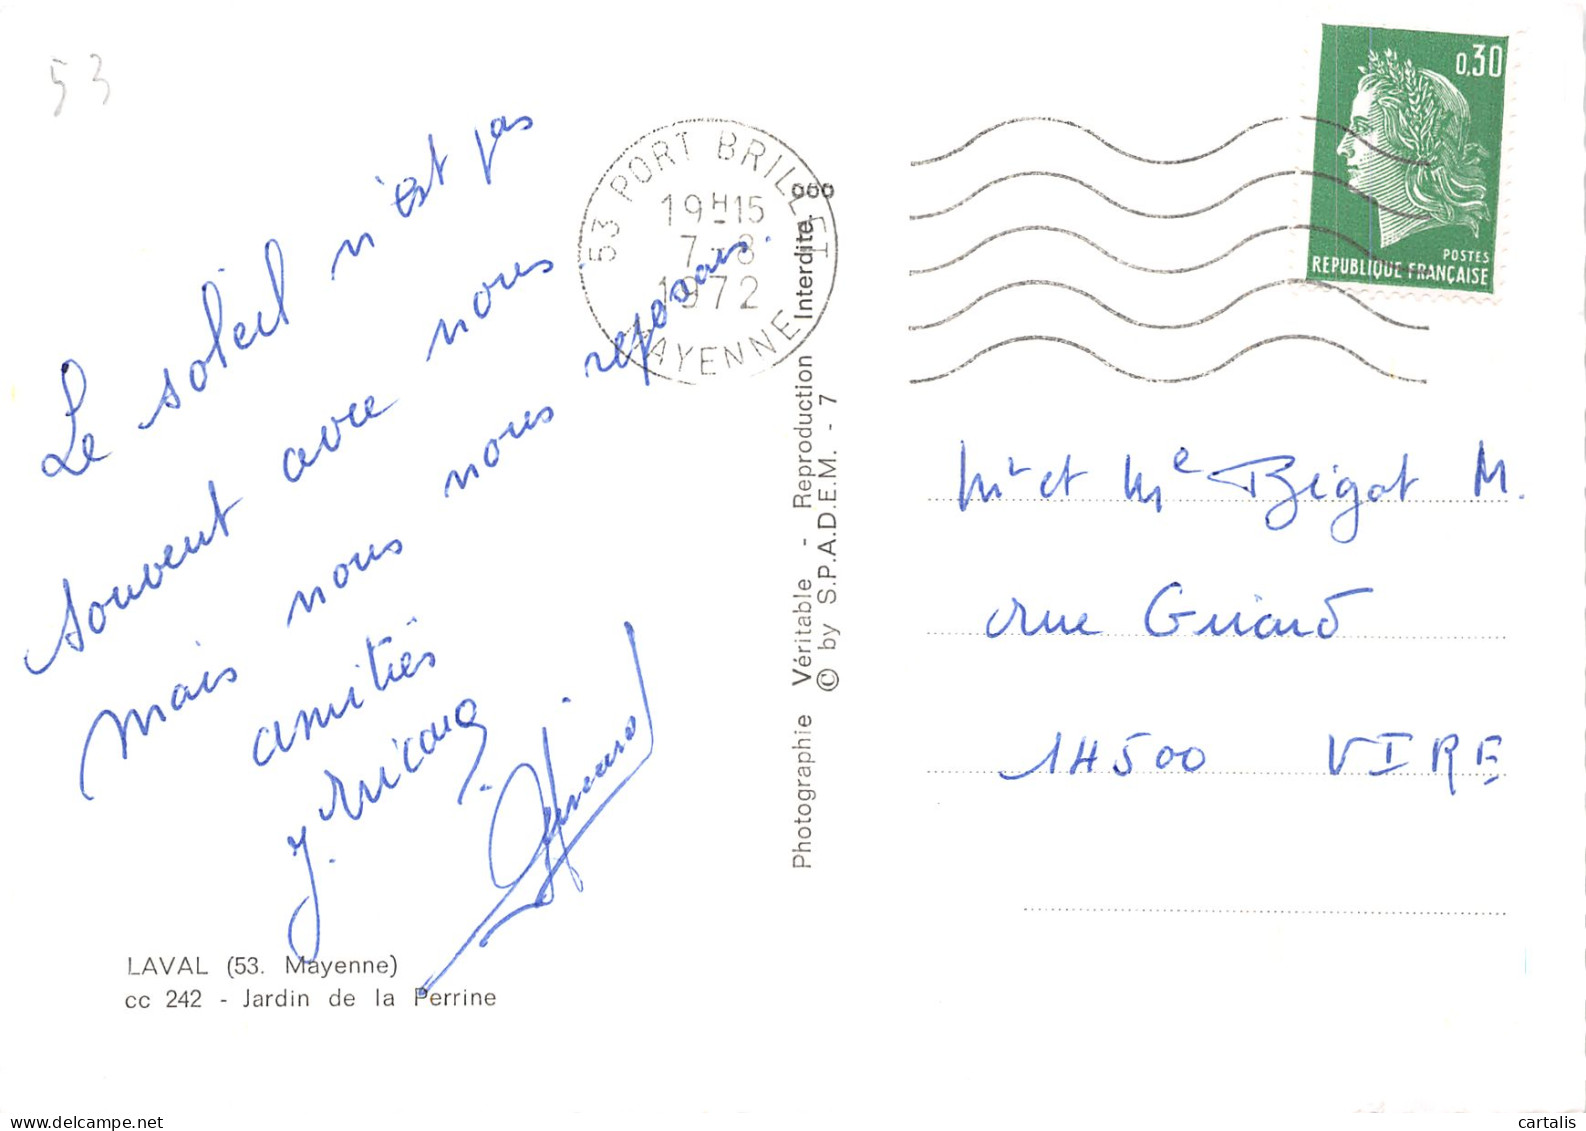 53
Le soleil n'est pas
souvent avec nous.
mais nous nous reposons.
amitiés
LAVAL (53. Mayenne)
cc 242 - Jardin de la Perrine
53 PORT BRILLET
19H15
7-8
1972
MAYENNE
Photographie Véritable - Reproduction Interdite.
© by S.P.A.D.E.M. - 7
0,30
POSTES
REPUBLIQUE FRANÇAISE
Mr et Me Bigot M.
rue Guiard
14500 VIRE
cartalis